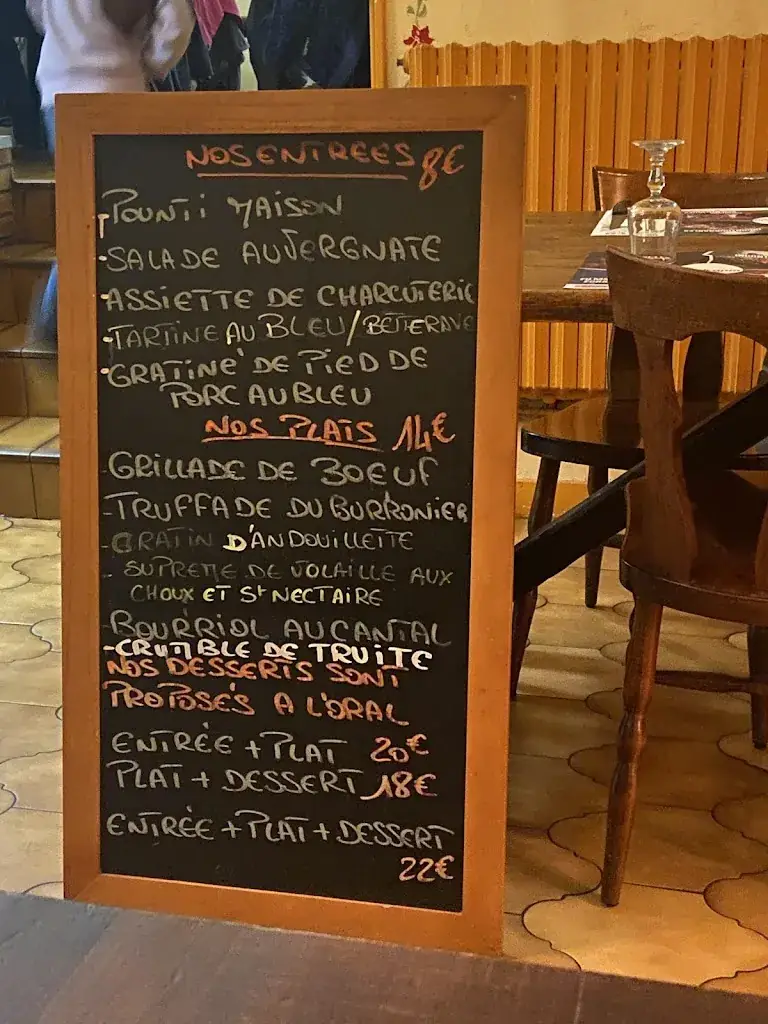 NOS ENTREES 8€
- POUNTI MAISON
- SALADE AUVERGNATE
- ASSIETTE DE CHARCUTERIE
- TARTINE AU BLEU/BETTERAVE
- GRATINÉ DE PIED DE
PORC AU BLEU
NOS PLATS 14€
- GRILLADE DE BOEUF
- TRUFFADE DU BURRONIER
- GRATIN D'ANDOUILLETTE
- SUPREME DE VOLAILLE AUX
CHOUX ET St NECTAIRE
- BOURRIOL AU CANTAL
- CRUMBLE DE TRUITE
NOS DESSERTS SONT
PROPOSÉS A L'ORAL
ENTRÉE + PLAT 20€
PLAT + DESSERT 18€
ENTRÉE + PLAT + DESSERT
22€